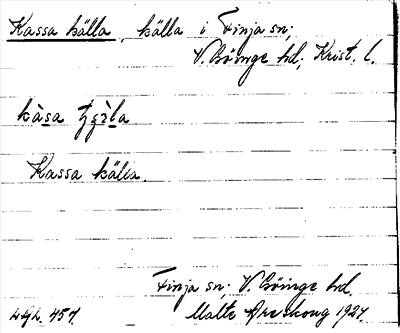 Kassa källa, källa i Finja sn;
V. Göinge hd; Krist. l.
kàsa
Kassa källa.
Finja sn; V. Göinge hd.
Malte Areskoug 1927.